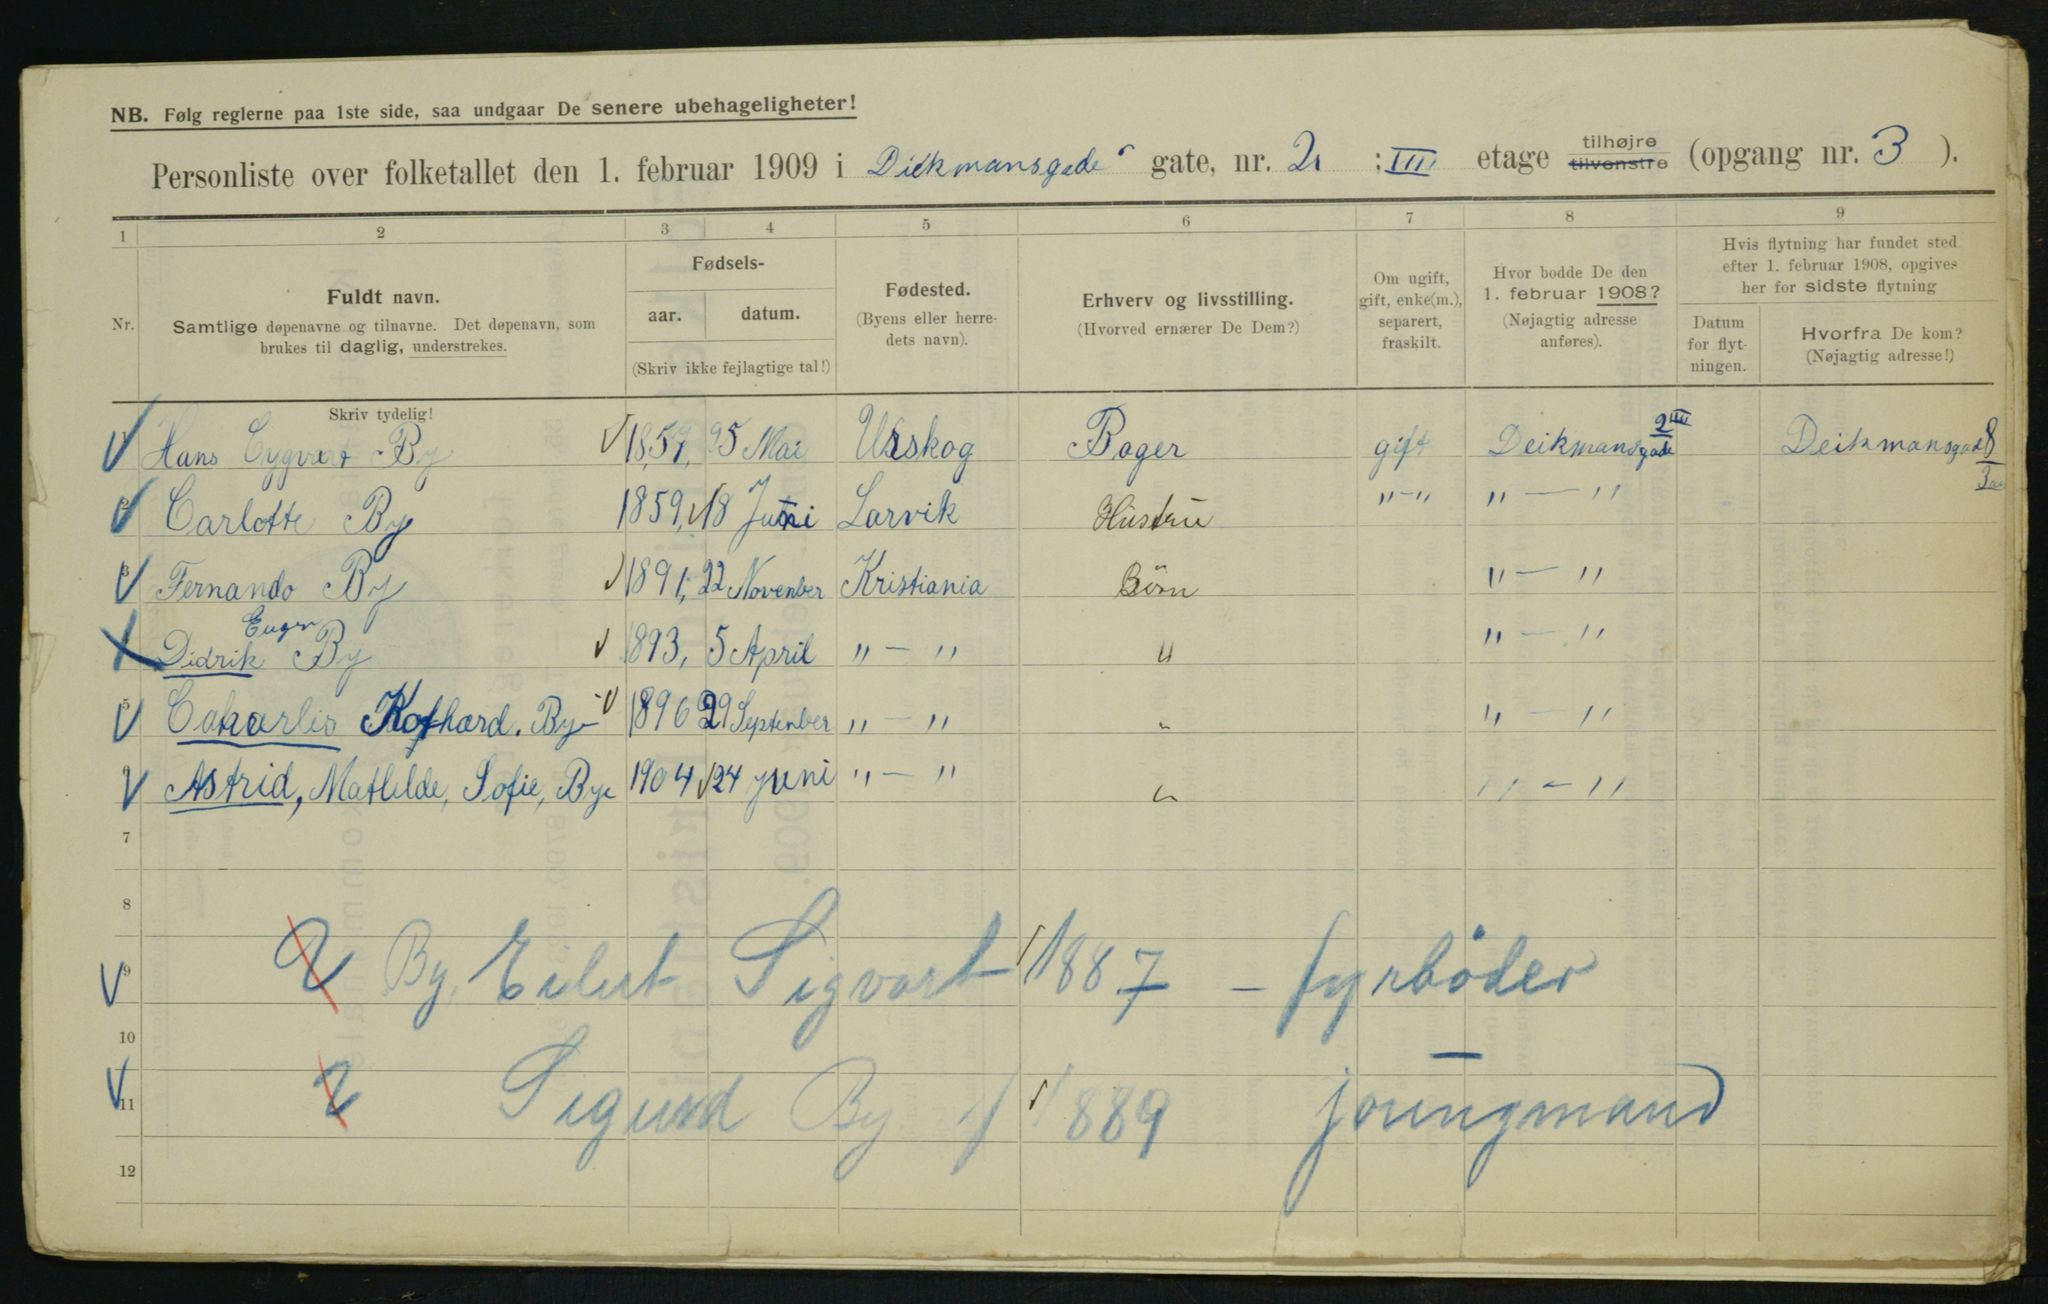 NB. Følg reglerne paa 1ste side, saa undgaar De senere ubehageligheter!
Personliste over folketallet den 1. februar 1909 i Dickmansgade gate, nr. 2 ; III etage tilhøjre tilvenstre (opgang nr. 3 ).
1 2 3 4 5 6 7 8 9
Nr.
Fuldt navn.
Samtlige døpenavne og tilnavne. Det døpenavn, som
brukes til daglig, understrekes.
Fødsels-
aar. datum.
(Skriv ikke fejlagtige tal!)
Fødested.
(Byens eller herre-
dets navn).
Erhverv og livsstilling.
(Hvorved ernærer De Dem?)
Om ugift,
gift, enke(m.),
separert,
fraskilt.
Hvor bodde De den
1. februar 1908?
(Nøjagtig adresse
anføres).
Hvis flytning har fundet sted
efter 1. februar 1908, opgives
her for sidste flytning
Datum
for flyt-
ningen.
Hvorfra De kom?
(Nøjagtig adresse!)
Skriv tydelig!
Hans By 25 Mai Urskog Bager gift Deikmansgade 2 III Deikmansgade 8
Carlotte By 1859, 18 Juni Larvik "-" Hustru "-"
3 Fernando By 1891, 22 November Kristiania Börn "-"
Didrik Eugen By 1893, 5 April "-" " "-"
5 Kathard. By 1896 29 September "-" " "-"
Astrid, Mathilde, Sofie, By 1904 24 juni "-" " "-"
7
8
9 By, Eilert Sigvart 1887 - fyrböder
10
11 Sigurd By 1889 joungmand
12